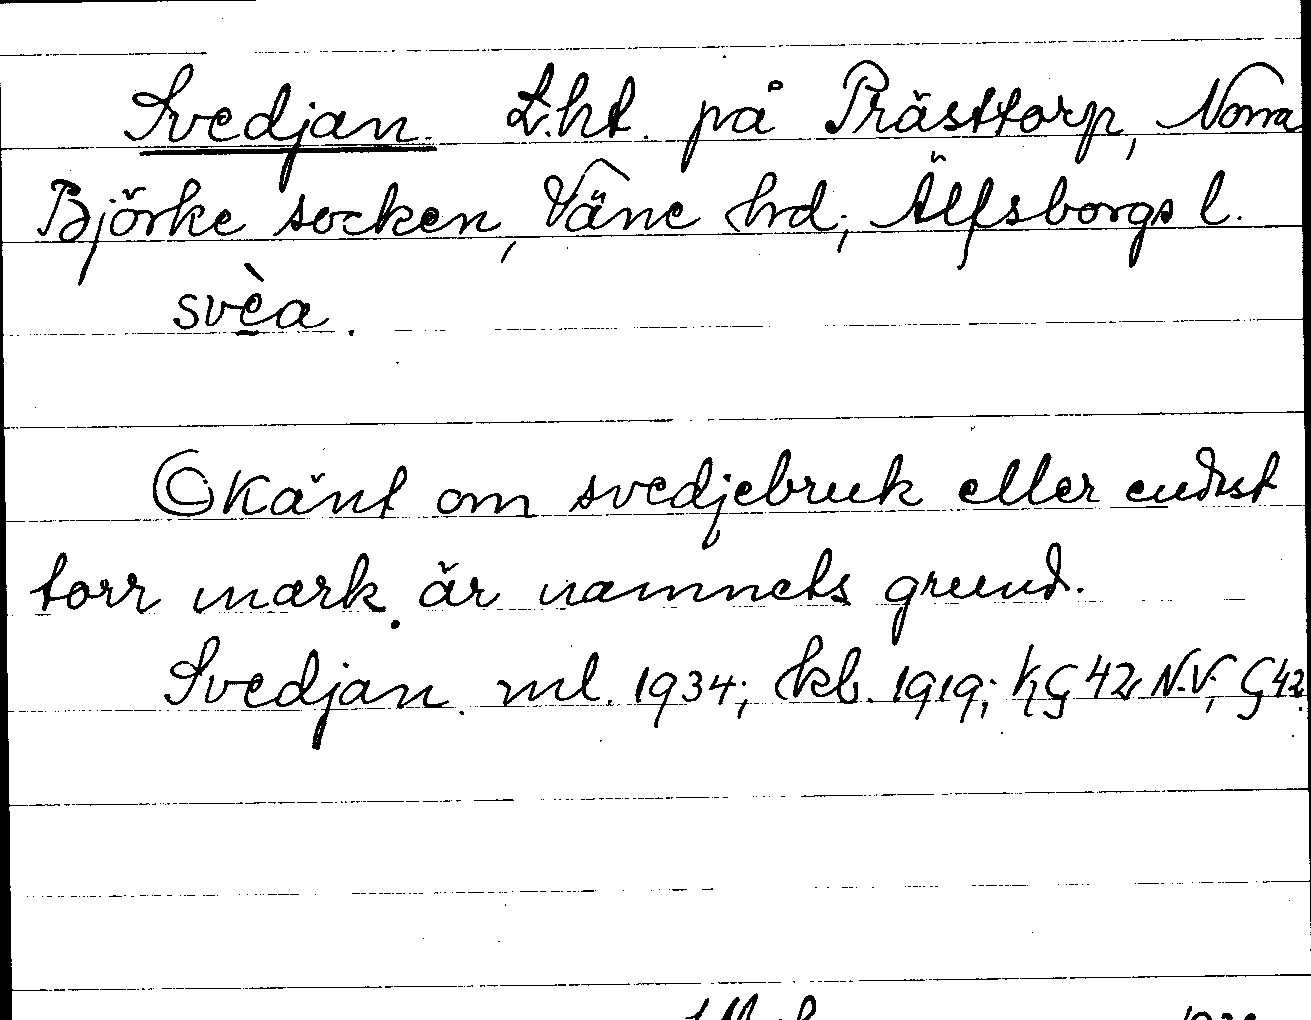 Svedjan. L.ht. på Prästtorp, Norra
Björke socken, Väne hrd; Älfsborgs l.
svèa.
Okänt om svedjebruk eller endast
torr mark är namnets grund.
Svedjan. ml. 1934; Kb. 1919; KG 42 N.V; G 42.